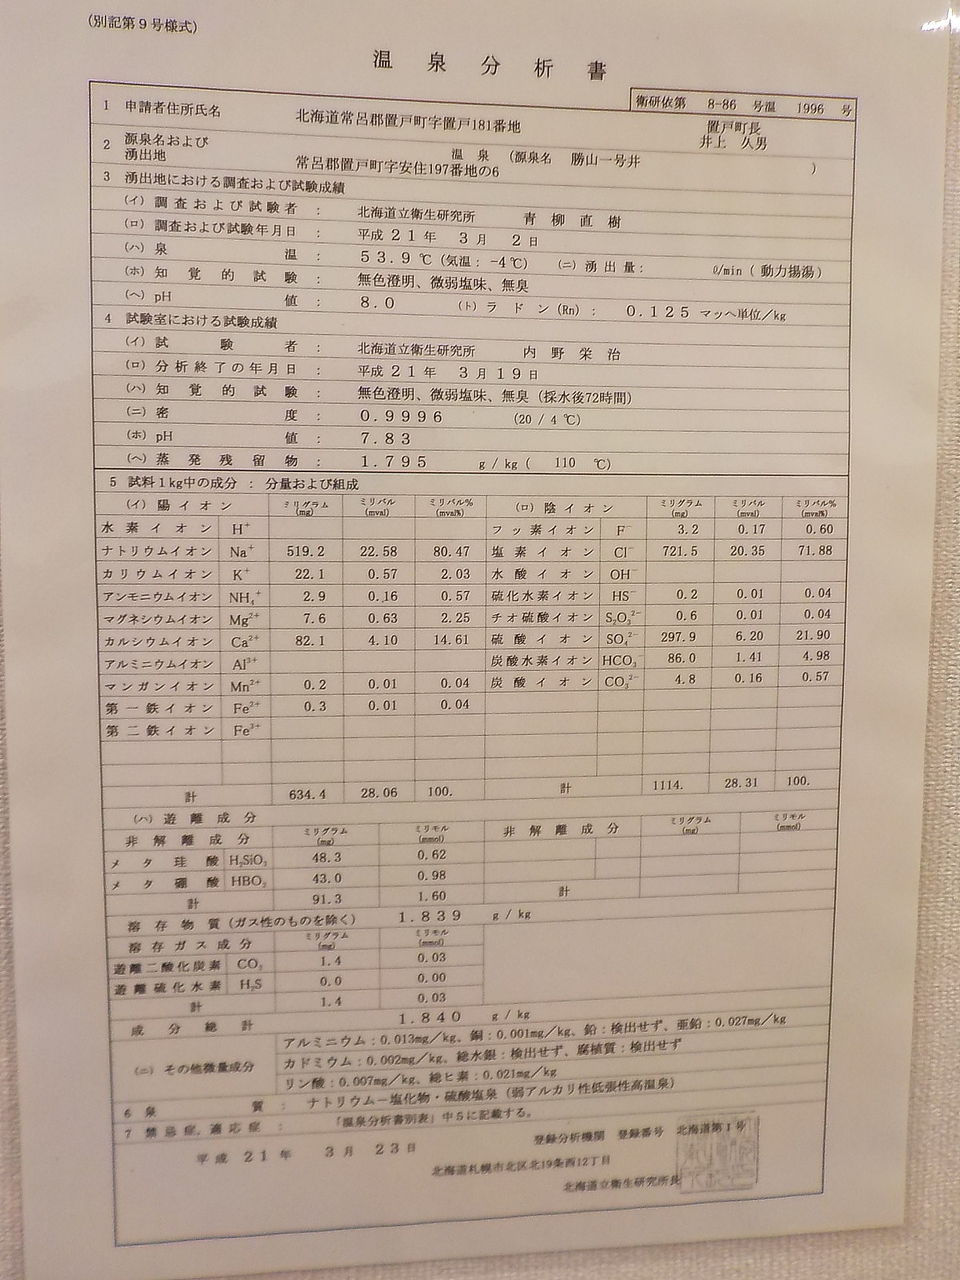 (別記第9号様式)
温泉分析書
衛研依第 8-86 号温 1996 号
1 申請者住所氏名 北海道常呂郡置戸町字置戸181番地 置戸町長 井上 久男
2 源泉名および湧出地 温泉 (源泉名 勝山一号井 )
常呂郡置戸町字安住197番地の6
3 湧出地における調査および試験成績
(イ) 調査および試験者 : 北海道立衛生研究所 青柳直樹
(ロ) 調査および試験年月日 : 平成21年 3月 2日
(ハ) 泉温 : 53.9℃ (気温: -4℃) (ニ) 湧出量: ℓ/min (動力揚湯)
(ホ) 知覚的試験 : 無色澄明、微弱塩味、無臭
(ヘ) pH値 : 8.0 (ト) ラドン(Rn) : 0.125 マッヘ単位/kg
4 試験室における試験成績
(イ) 試験者 : 北海道立衛生研究所 内野栄治
(ロ) 分析終了の年月日 : 平成21年 3月19日
(ハ) 知覚的試験 : 無色澄明、微弱塩味、無臭 (採水後72時間)
(ニ) 密度 : 0.9996 (20 / 4 ℃)
(ホ) pH値 : 7.83
(ヘ) 蒸発残留物 : 1.795 g / kg ( 110 ℃)
5 試料1kg中の成分 : 分量および組成
(イ) 陽イオン ミリグラム(mg) ミリバル(mval) ミリバル%(mval%) (ロ) 陰イオン ミリグラム(mg) ミリバル(mval) ミリバル%(mval%)
水素イオン H⁺ フッ素イオン F⁻ 3.2 0.17 0.60
ナトリウムイオン Na⁺ 519.2 22.58 80.47 塩素イオン Cl⁻ 721.5 20.35 71.88
カリウムイオン K⁺ 22.1 0.57 2.03 水酸イオン OH⁻
アンモニウムイオン NH₄⁺ 2.9 0.16 0.57 硫化水素イオン HS⁻ 0.2 0.01 0.04
マグネシウムイオン Mg²⁺ 7.6 0.63 2.25 チオ硫酸イオン S₂O₃²⁻ 0.6 0.01 0.04
カルシウムイオン Ca²⁺ 82.1 4.10 14.61 硫酸イオン SO₄²⁻ 297.9 6.20 21.90
アルミニウムイオン Al³⁺ 炭酸水素イオン HCO₃⁻ 86.0 1.41 4.98
マンガンイオン Mn²⁺ 0.2 0.01 0.04 炭酸イオン CO₃²⁻ 4.8 0.16 0.57
第一鉄イオン Fe²⁺ 0.3 0.01 0.04
第二鉄イオン Fe³⁺
計 634.4 28.06 100. 計 1114. 28.31 100.
(ハ) 遊離成分
非解離成分 ミリグラム(mg) ミリモル(mmol) 非解離成分 ミリグラム(mg) ミリモル(mmol)
メタ珪酸 H₂SiO₃ 48.3 0.62
メタ硼酸 HBO₂ 43.0 0.98
計 91.3 1.60 計
溶存物質 (ガス性のものを除く) 1.839 g / kg
溶存ガス成分 ミリグラム(mg) ミリモル(mmol)
遊離二酸化炭素 CO₂ 1.4 0.03
遊離硫化水素 H₂S 0.0 0.00
計 1.4 0.03
成分総計 1.840 g / kg
(ニ) その他微量成分 アルミニウム:0.013mg/kg、銅:0.001mg/kg、鉛:検出せず、亜鉛:0.027mg/kg
カドミウム:0.002mg/kg、総水銀:検出せず、腐植質:検出せず
リン酸:0.007mg/kg、総ヒ素:0.021mg/kg
6 泉質 : ナトリウム-塩化物・硫酸塩泉 (弱アルカリ性低張性高温泉)
7 禁忌症, 適応症 : 「温泉分析書別表」中5に記載する。
登録分析機関 登録番号 北海道第1号
平成 21年 3月 23日
北海道札幌市北区北19条西12丁目
北海道立衛生研究所長